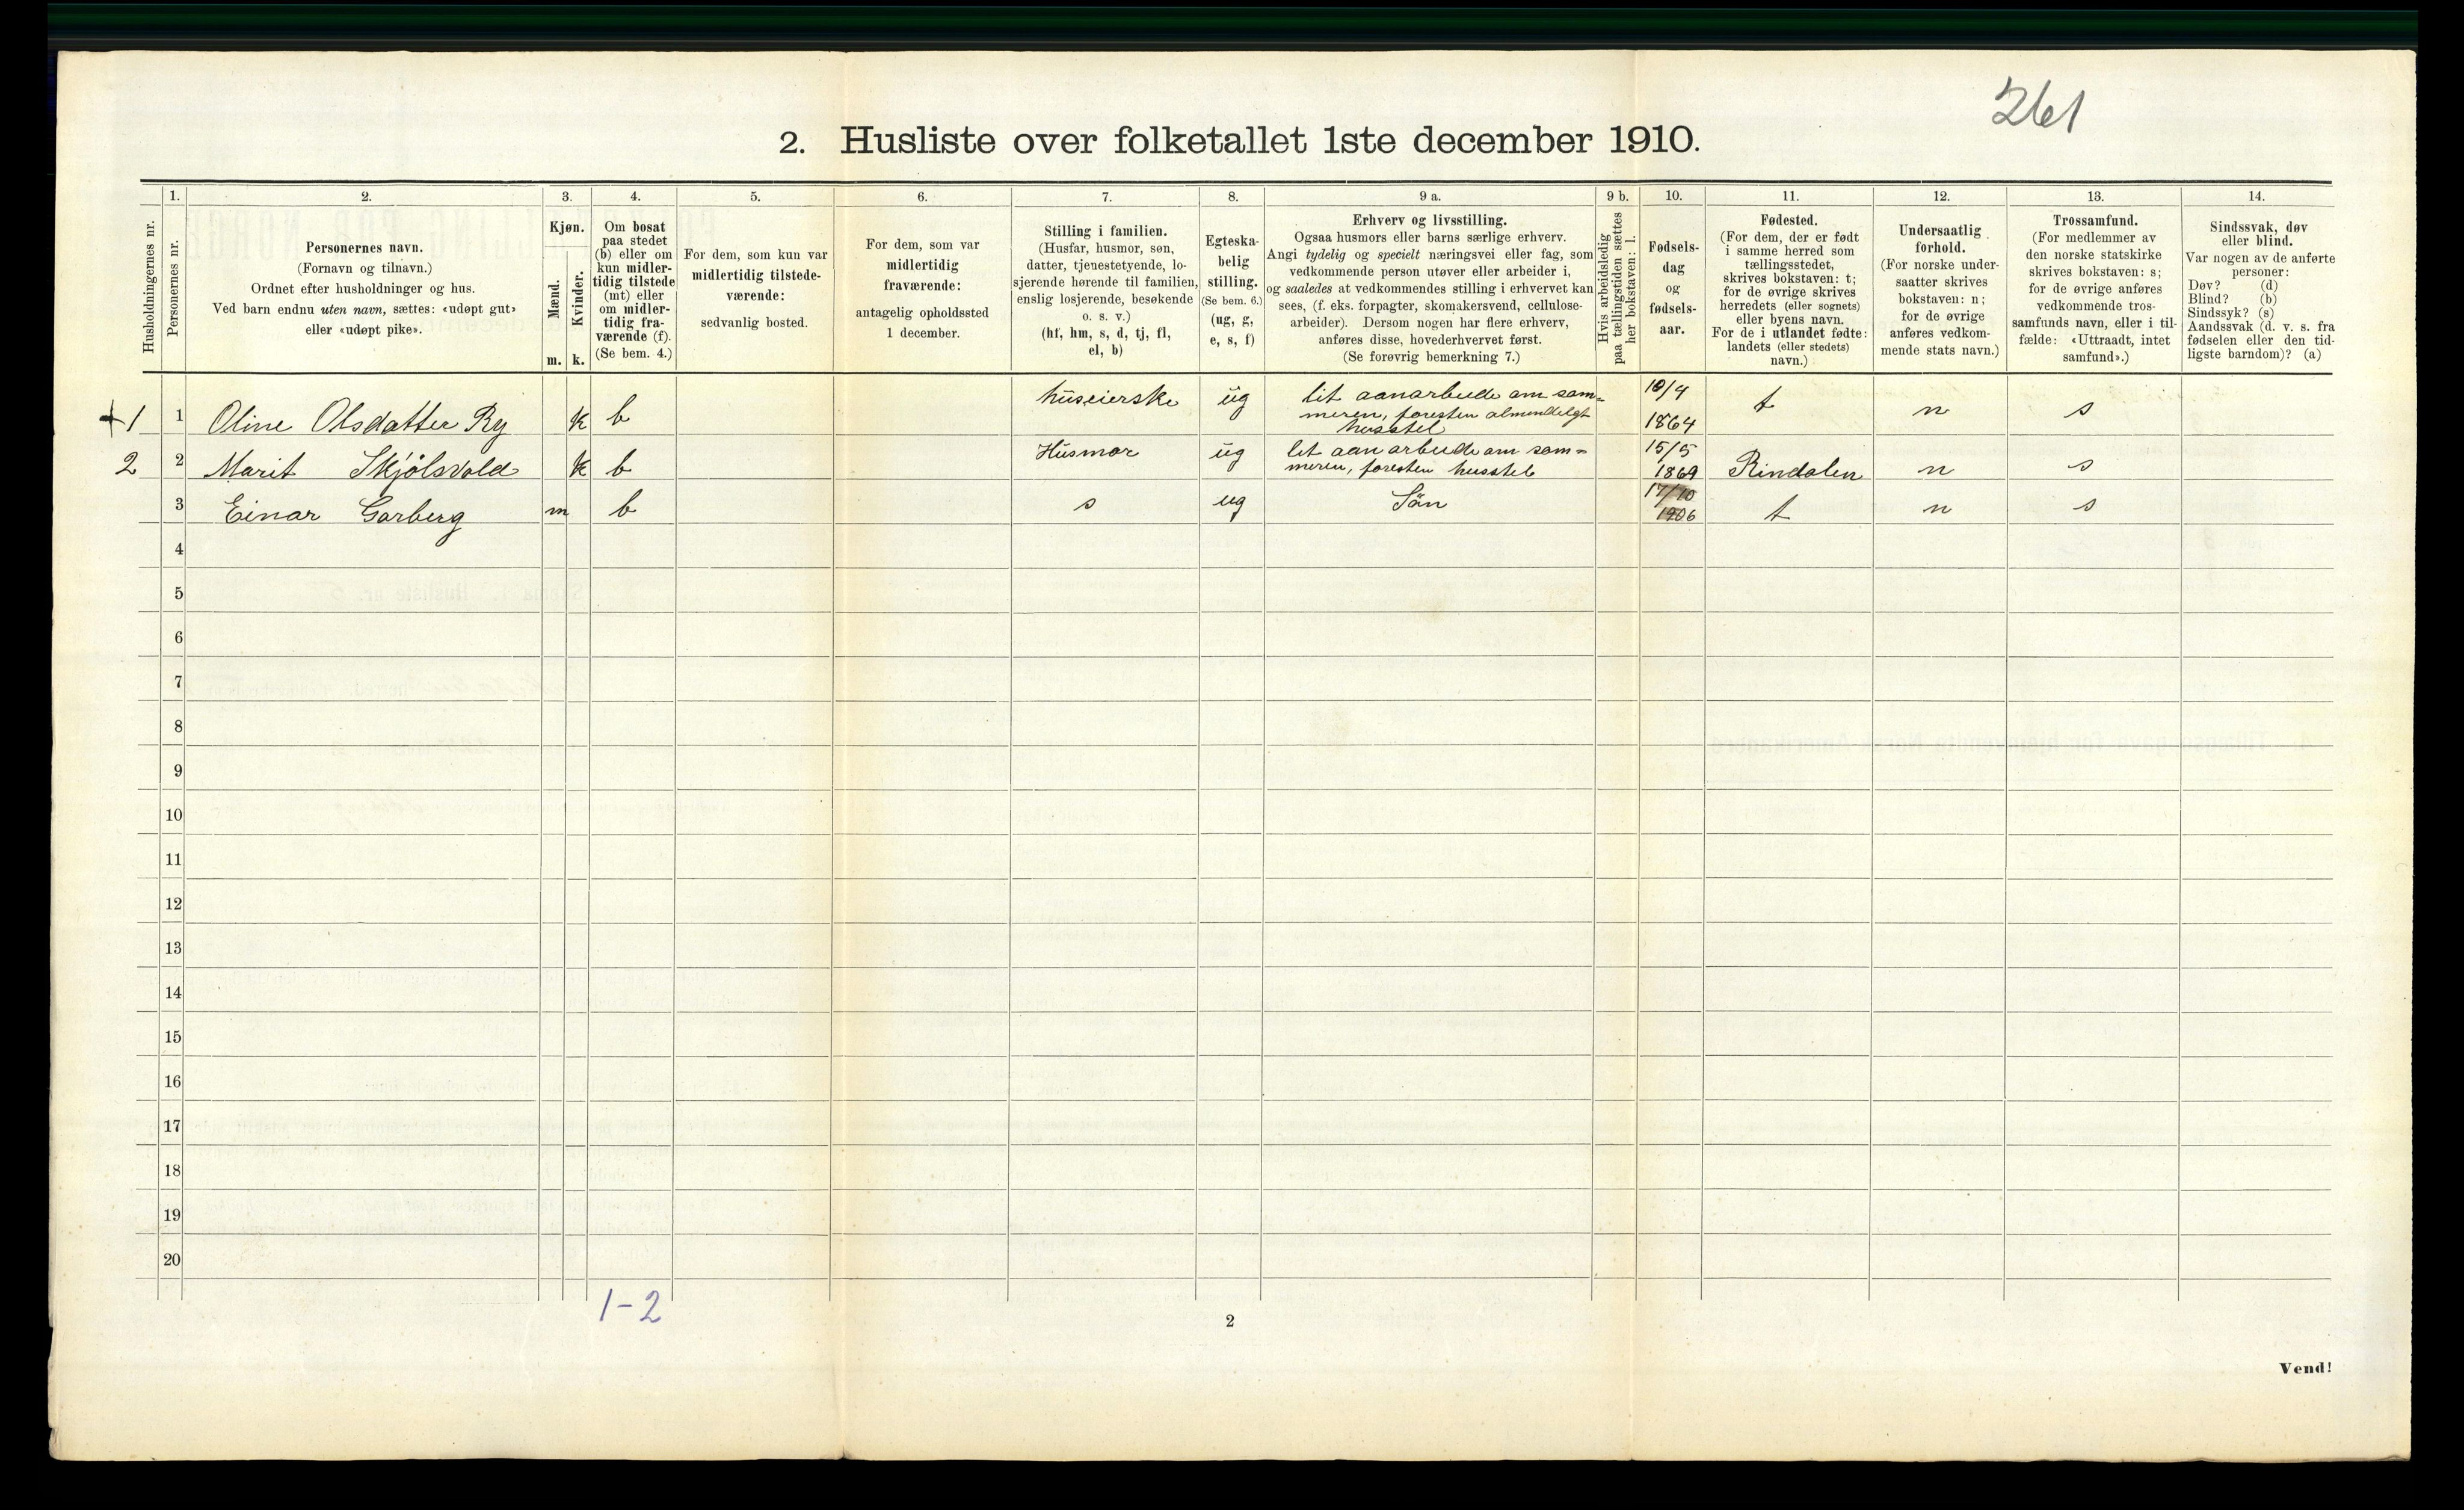 261
2. Husliste over folketallet 1ste december 1910.
Husholdningernes nr.
1.
Personernes nr.
2.
Personernes navn.
(Fornavn og tilnavn.)
Ordnet efter husholdninger og hus.
Ved barn endnu uten navn, sættes: «udøpt gut»
eller «udøpt pike».
3.
Kjøn.
Mænd.
Kvinder.
m. k.
4.
Om bosat
paa stedet
(b) eller om
kun midler-
tidig tilstede
(mt) eller
om midler-
tidig fra-
værende (f).
(Se bem. 4.)
5.
For dem, som kun var
midlertidig tilstede-
værende:
sedvanlig bosted.
6.
For dem, som var
midlertidig
fraværende:
antagelig opholdssted
1 december.
7.
Stilling i familien.
(Husfar, husmor, søn,
datter, tjenestetyende, lo-
sjerende hørende til familien,
enslig losjerende, besøkende
o. s. v.)
(hf, hm, s, d, tj, fl,
el, b)
8.
Egteska-
belig
stilling.
(Se bem. 6.)
(ug, g,
e, s, f)
9 a.
Erhverv og livsstilling.
Ogsaa husmors eller barns særlige erhverv.
Angi tydelig og specielt næringsvei eller fag, som
vedkommende person utøver eller arbeider i,
og saaledes at vedkommendes stilling i erhvervet kan
sees, (f. eks. forpagter, skomakersvend, cellulose-
arbeider). Dersom nogen har flere erhverv,
anføres disse, hovederhvervet først.
(Se forøvrig bemerkning 7.)
9 b.
Hvis arbeidsledig
paa tællingstiden sættes
her bokstaven: l.
10.
Fødsels-
dag
og
fødsels-
aar.
11.
Fødested.
(For dem, der er født
i samme herred som
tællingsstedet,
skrives bokstaven: t;
for de øvrige skrives
herredets (eller sognets)
eller byens navn.
For de i utlandet fødte:
landets (eller stedets)
navn.)
12.
Undersaatlig
forhold.
(For norske under-
saatter skrives
bokstaven: n;
for de øvrige
anføres vedkom-
mende stats navn.)
13.
Trossamfund.
(For medlemmer av
den norske statskirke
skrives bokstaven: s;
for de øvrige anføres
vedkommende tros-
samfunds navn, eller i til-
fælde: «Uttraadt, intet
samfund».)
14.
Sindssvak, døv
eller blind.
Var nogen av de anførte
personer:
Døv? (d)
Blind? (b)
Sindssyk? (s)
Aandssvak (d. v. s. fra
fødselen eller den tid-
ligste barndom)? (a)
+1 1 Oline Olsdatter Ry k b huseierske ug lit aanarbeide om som-
meren, foresten almindeligt
husstel
10/4
1864 t n s
2 2 Marit Skjölsvold k b Husmor ug let aan arbeide om som-
meren, foresten husstel
15/5
1869 Rindalen n s
3 Einar Garberg m b s ug Sön 17/10
1906 t n s
4
5
6
7
8
9
10
11
12
13
14
15
16
17
18
19
20
1-2
2
Vend!